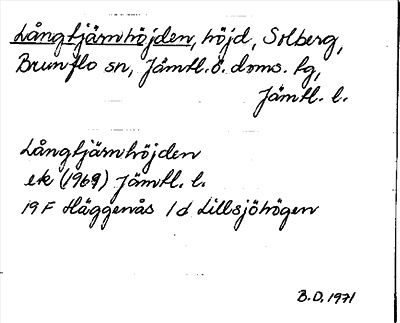 Långtjärnhöjden, höjd, Solberg,
Brunflo sn, Jämtl. ö. doms. fg,
Jämtl. l.
Långtjärnhöjden
ek (1969) Jämtl. l.
19 F Häggenås 1d Lillsjöhögen
B.D. 1971